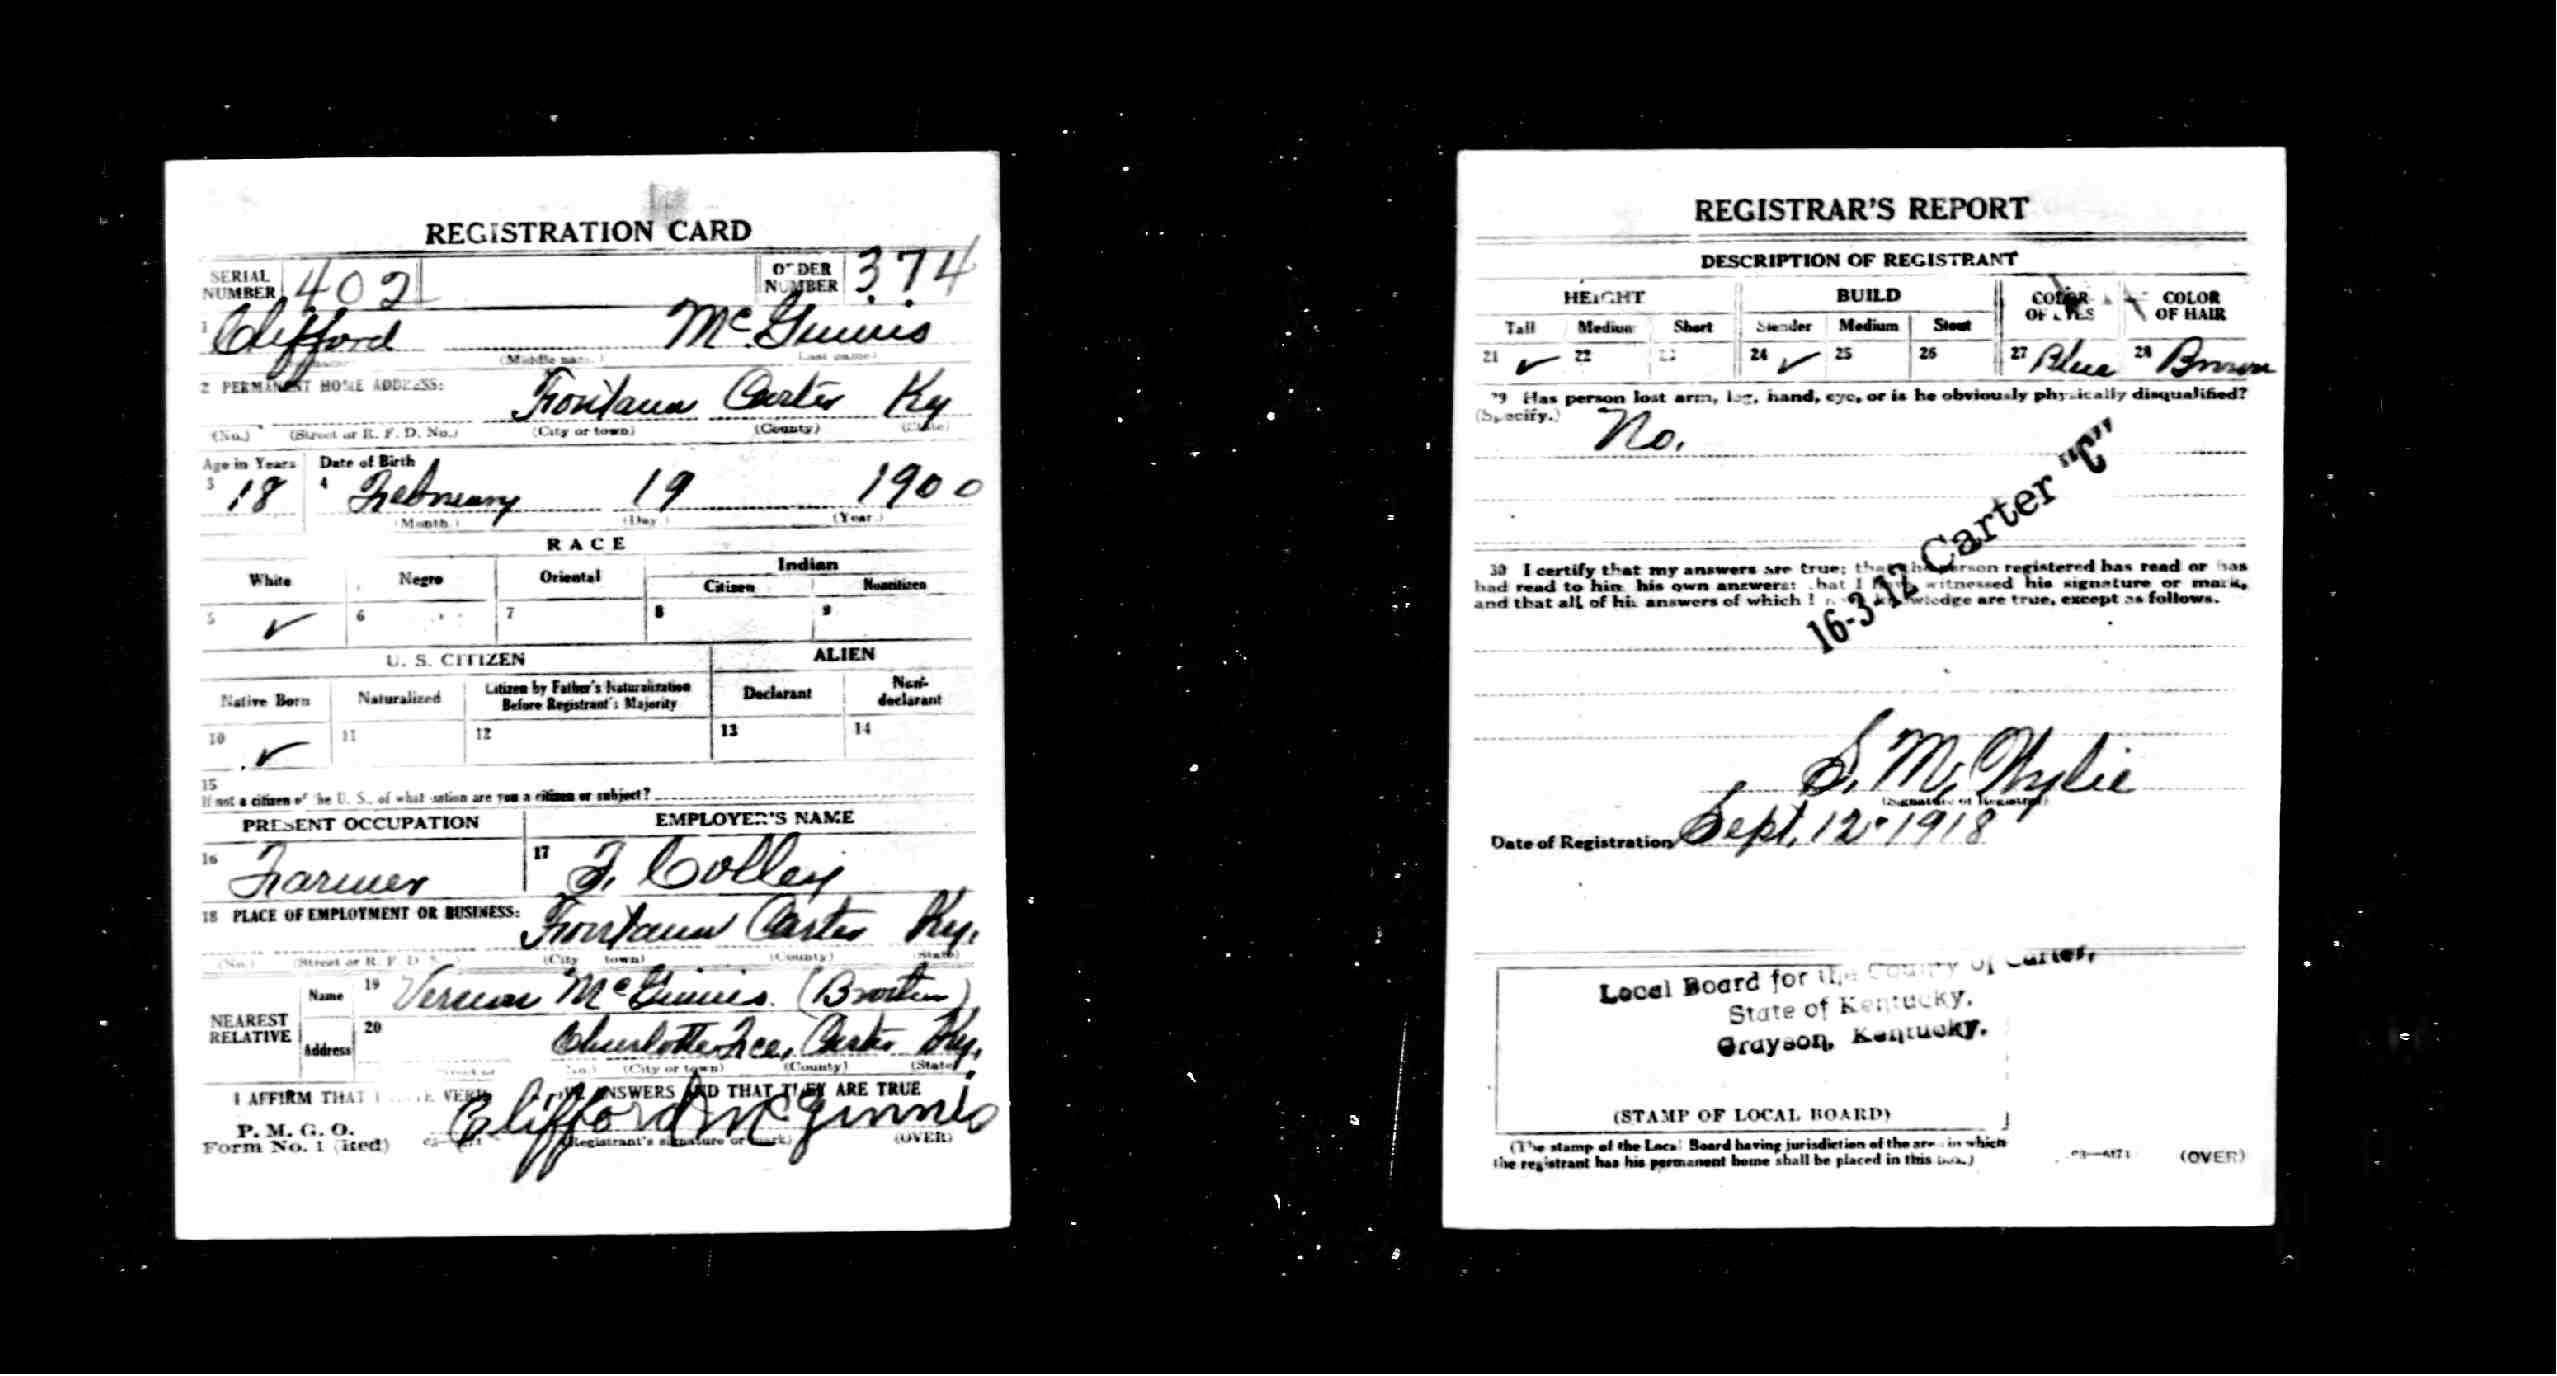 REGISTRATION CARD
SERIAL NUMBER 402 ORDER NUMBER 374
1 Clifford McGinnis
(Middle name) (Last name)
2 PERMANENT HOME ADDRESS:
Carter Ky
(No.) (Street or R. F. D. No.) (City or town) (County) (State)
Age in Years Date of Birth
3 18 4 February 19 1900
(Month.) (Day.) (Year.)
RACE
White Negro Oriental Indian
Citizen Noncitizen
5 ✓ 6 7 8 9
U. S. CITIZEN ALIEN
Native Born Naturalized Citizen by Father's Naturalization Before Registrant's Majority Declarant Non-declarant
10 ✓ 11 12 13 14
15
If not a citizen of the U. S., of what nation are you a citizen or subject?
PRESENT OCCUPATION EMPLOYER'S NAME
16 Farmer 17 F. Colley
18 PLACE OF EMPLOYMENT OR BUSINESS:
Carter Ky.
(No.) (Street or R. F. D. No.) (City or town) (County) (State)
NEAREST RELATIVE
Name 19 Vernon McGinnis (Brother)
Address 20 Carter Ky.
(City or town) (County) (State)
I AFFIRM THAT I HAVE VERIFIED ABOVE ANSWERS AND THAT THEY ARE TRUE
P. M. G. O.
Form No. 1 (Red) Clifford McGinnis
(Registrant's signature or mark) (OVER)
REGISTRAR'S REPORT
DESCRIPTION OF REGISTRANT
HEIGHT BUILD COLOR OF EYES COLOR OF HAIR
Tall Medium Short Slender Medium Stout
21 ✓ 22 23 24 ✓ 25 26 27 Blue 28 Brown
29 Has person lost arm, leg, hand, eye, or is he obviously physically disqualified?
(Specify.) No.
16-3-12 Carter "C"
30 I certify that my answers are true; that the person registered has read or has
had read to him his own answers; that I have witnessed his signature or mark,
and that all of his answers of which I have knowledge are true, except as follows.
S. M. Wylie
(Signature of Registrar)
Date of Registration Sept. 12 - 1918
Local Board for the County of Carter,
State of Kentucky,
Grayson, Kentucky.
(STAMP OF LOCAL BOARD)
(The stamp of the Local Board having jurisdiction of the area in which
the registrant has his permanent home shall be placed in this box.)
(OVER)